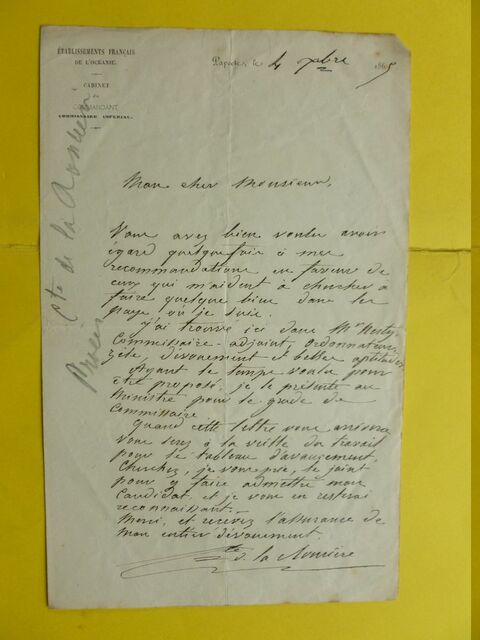 ÉTABLISSEMENTS FRANÇAIS
DE L'OCÉANIE.
CABINET
du
COMMANDANT
COMMISSAIRE IMPÉRIAL.
Papeete, le 4 xbre 1865
Cte de la Roncière
Mon cher Monsieur,
Vous avez bien voulu avoir
égard quelquefois à mes
recommandations en faveur de
ceux qui m'aident à chercher à
faire quelque bien dans les
pays où je suis.
J'ai trouvé ici dans Mr
Commissaire-adjoint, ordonnateur,
zèle, dévouement et belles aptitudes.
Ayant le temps voulu pour
être proposé, je le présente au
Ministre pour le grade de
Commissaire.
Quand cette lettre vous arrivera
vous serez à la veille du travail
pour le tableau d'avancement.
Cherchez, je vous prie, le joint
pour y faire admettre mon
candidat et je vous en resterai
reconnaissant.
Merci, et recevez l'assurance de
mon entier dévouement.
Cte de la Roncière